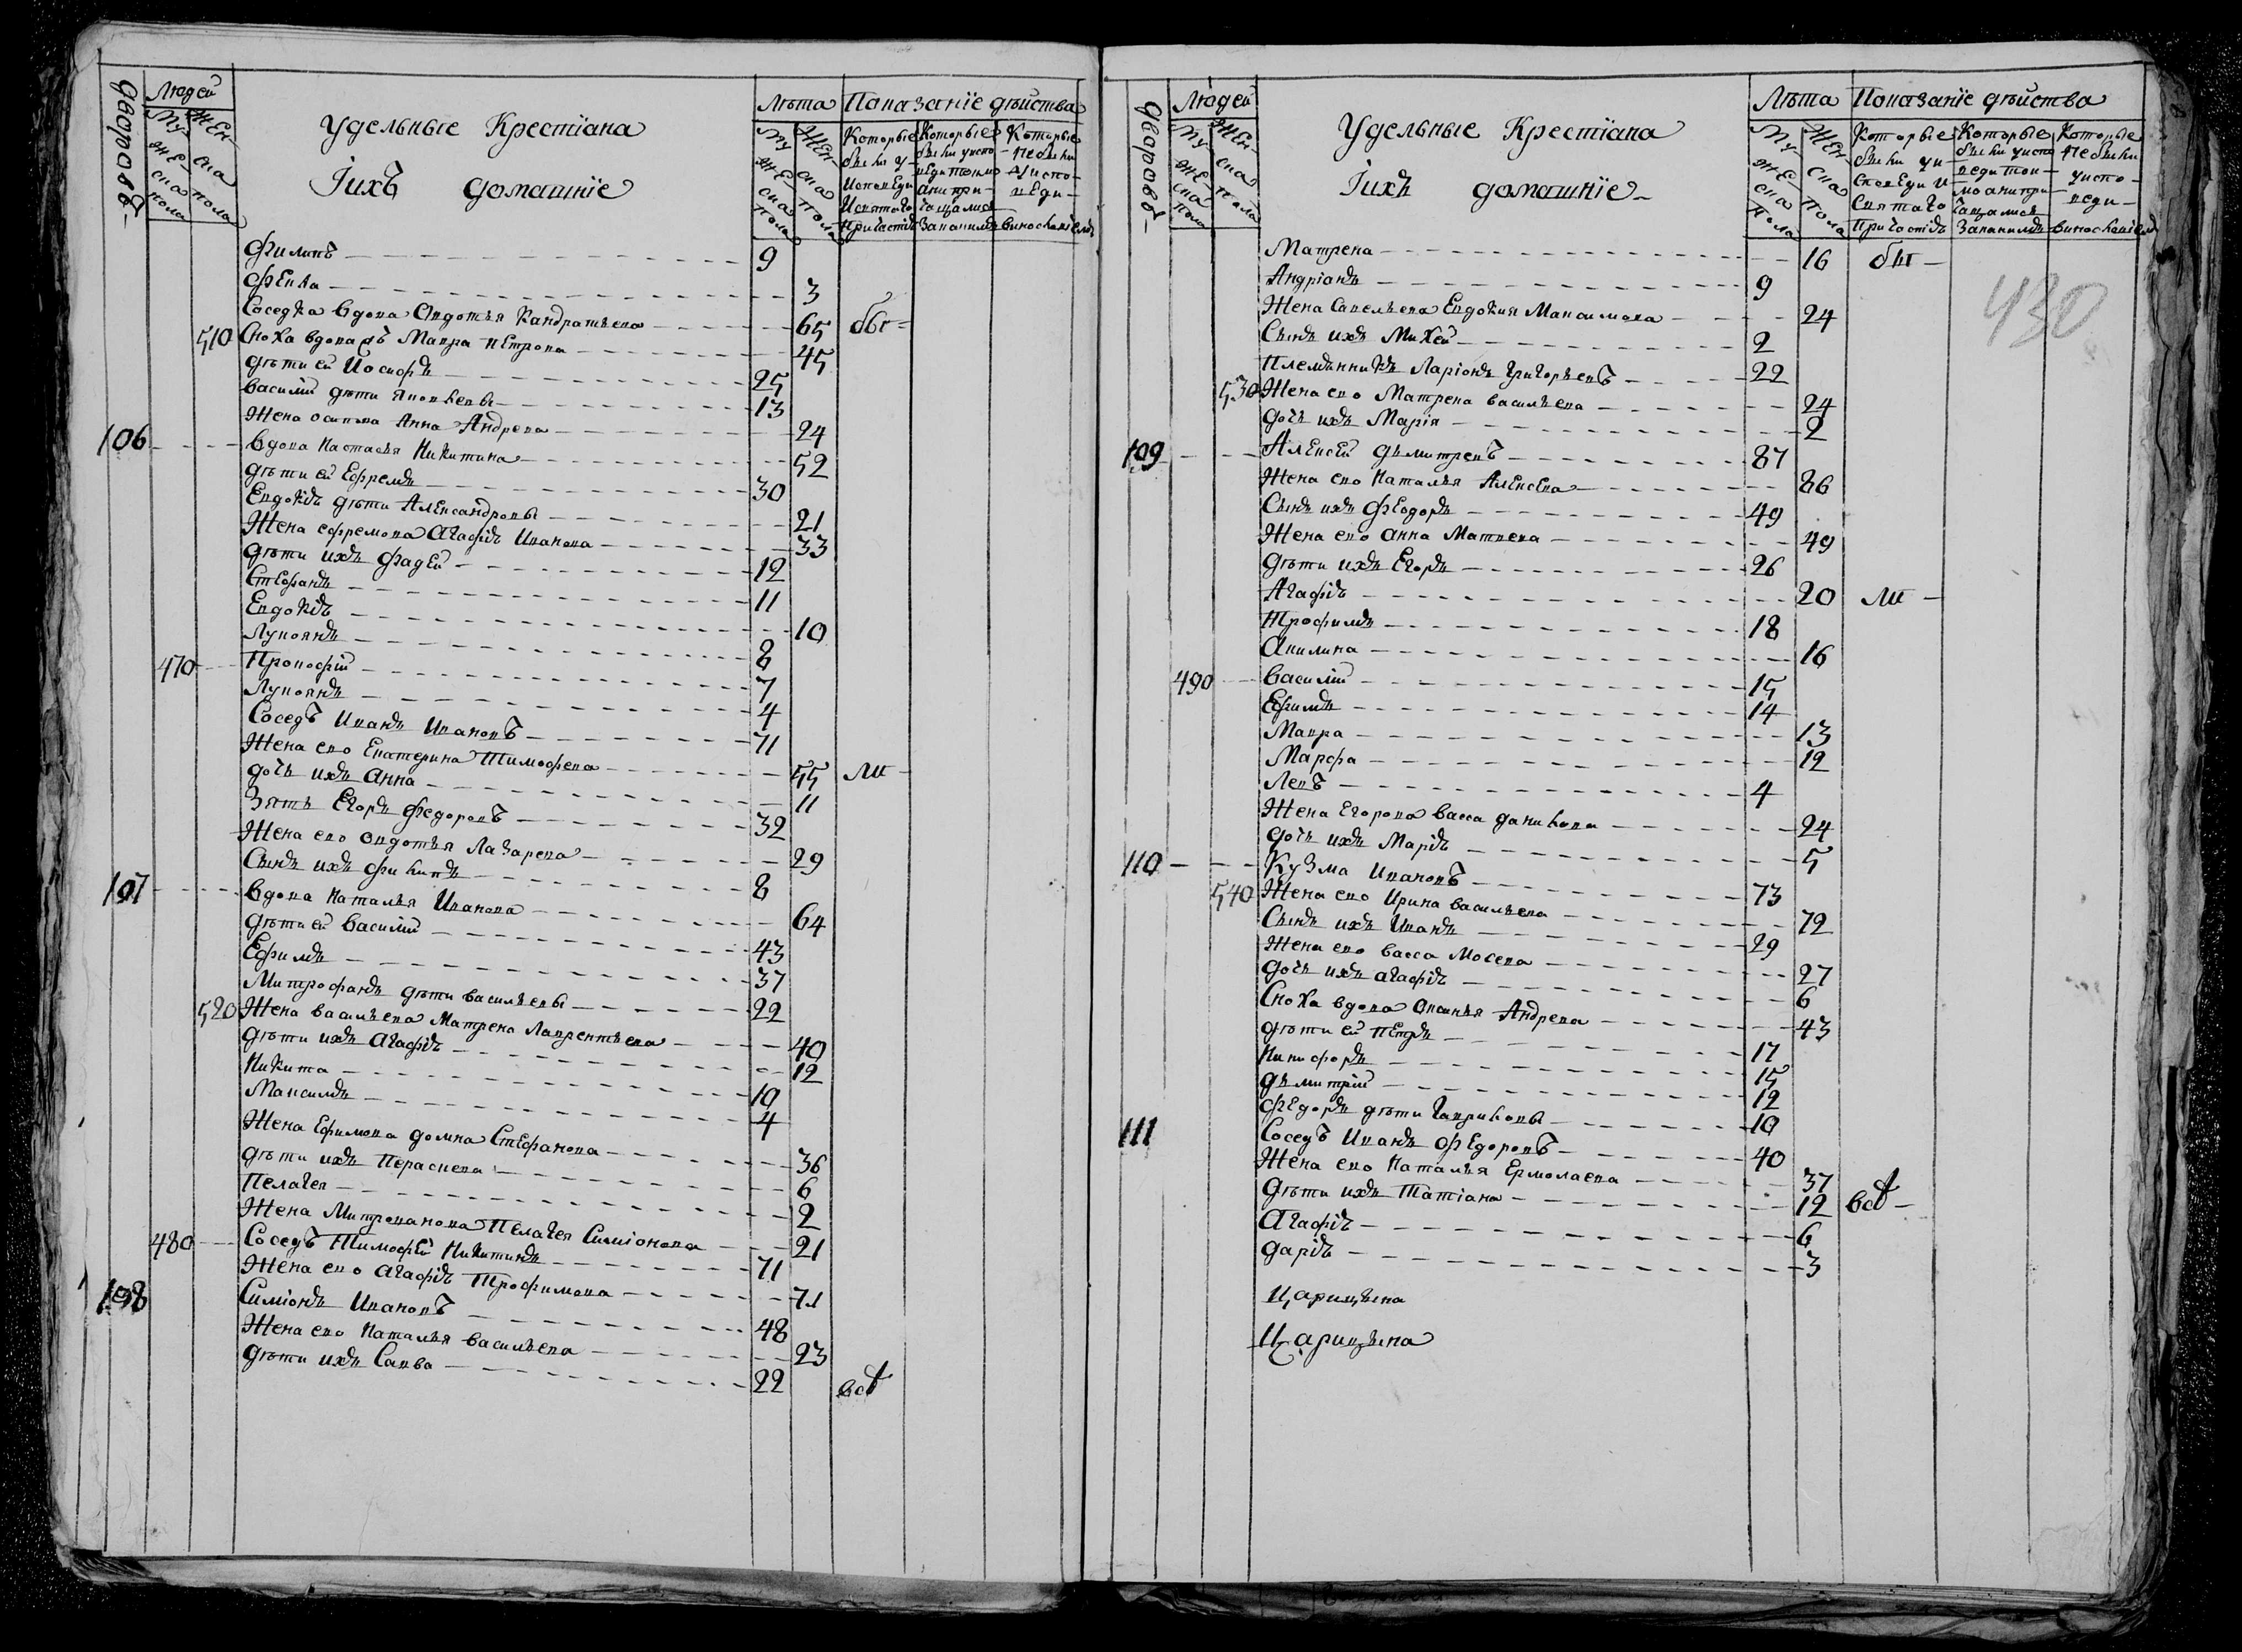 дворовъ
Людей
Мужеска пола
Женска пола
Удельные Крестїана
Їихъ домашнїе
Лѣта
Показанїе дѣйства
Мужеска пола
Женска пола
Которые были у Исповеди Исвятаго Причастїя
Которые были уисповеди токмо анипричащалися
Которые небыли уисповеди
Филипъ 9
Фекла 3
Соседка вдова Овдотья Кандратьева 65 бы
510 Сноха вдова Мавра Петрова 45
дѣти ей Иосифъ 25
Василий дѣти Яковлевы 13
Жена осипова Анна Андрева 24
106 Вдова Настасья Никитина 52
дѣти ей Ефремъ 30
Евдокїя дѣти Александровы 21
Жена ефремова Агафїя Иванова 33
дѣти ихъ Фадей 12
Стефанъ 11
Евдокїя 10
Лукоянъ 8
470 Прокофий 7
Лукоянъ 4
Соседъ Иванъ Ивановъ 71
Жена ево Екатерина Тимофева 55 ли
дочь ихъ Анна 11
Зять Егоръ Федоровъ 32
Жена ево Овдотья Лазарева 29
Сынъ ихъ Филипъ 8
107 Вдова Наталья Иванова 64
дѣти ей Василий 43
Ефимъ 37
Митрофанъ дѣти васильевы 22
520 Жена васильева Матрена Лаврентьева 40
дѣти ихъ Агафїя 12
Никита 10
Максимъ 4
Жена Ефимова домна Стефанова 36
дѣти ихъ Пераскева 6
Пелагея 2
Жена Митрованова Пелагея Симионова 21
480 Соседъ Тимофей Никитинъ 71
Жена ево Агафїя Трофимова 71
108 Симїонъ Ивановъ 48
Жена ево Наталья васильева 23
дѣти ихъ Савва 22
всѣ
дворовъ
Людей
Мужеска пола
Женска пола
Удельные Крестїана
Їихъ домашнїе
Лѣта
Показанїе дѣйства
Мужеска пола
Женска пола
Которые были уисповеди Исвятаго Причастїя
Которые были уисповеди токмо анипричащалися
Которые небыли уисповеди
430
Матрена 16 бы
Андрїанъ 9
Жена Савельева Евдокия Максимова 24
Сынъ ихъ Михей 2
Племянникъ Ларїонъ Григорьевъ 22
530 Жена ево Матрена васильева 24
дочь ихъ Марїя 2
109 Алексей дьмитревъ 87
Жена ево Наталья Алексева 86
Сынъ ихъ Феодоръ 49
Жена ево Анна Матвева 49
дѣти ихъ Егоръ 26
Агафїя 20 ли
Трофимъ 18
Акилина 16
490 Василий 15
Ефимъ 14
Мавра 13
Марфа 12
Левъ 4
Жена Егорова васса данилова 24
дочь ихъ Марїя 5
110 Кузма Ивановъ 73
540 Жена ево Ирина васильева 72
Сынъ ихъ Иванъ 29
Жена ево васса Мосева 27
дочь ихъ агафїя 6
Сноха вдова Оксинья Андрева 43
дѣти ей Петръ 17
Никифоръ 15
дьмитрий 12
Федоръ дѣти Гавриловы 10
111 Соседъ Иванъ Федоровъ 40
Жена ево Наталья Ермолаева 37
дѣти ихъ Татїана 12 всѣ
Агафїя 6
дарїя 3
Царицына
Царицына